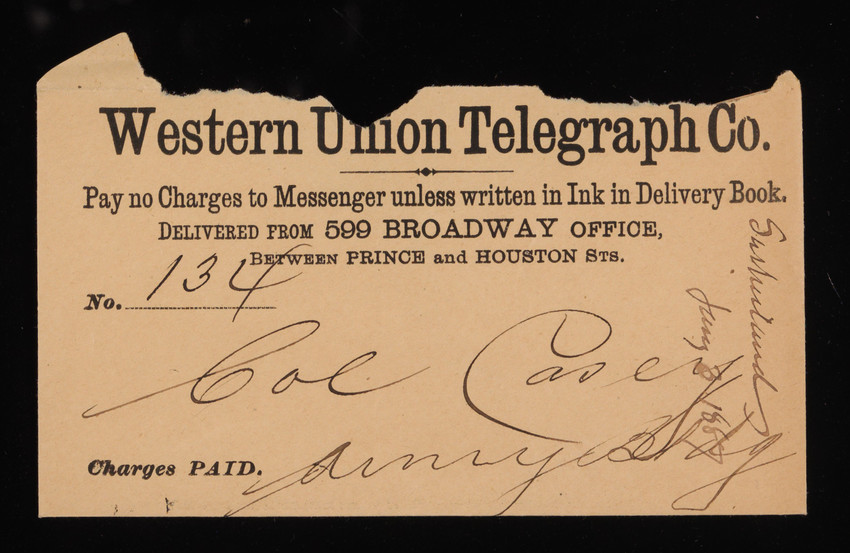 Western Union Telegraph Co.
Pay no Charges to Messenger unless written in Ink in Delivery Book.
DELIVERED FROM 599 BROADWAY OFFICE,
BETWEEN PRINCE and HOUSTON STS.
No. 134
Col Casey
Charges PAID. Army Bldg
Sutherland
Jany 3 188